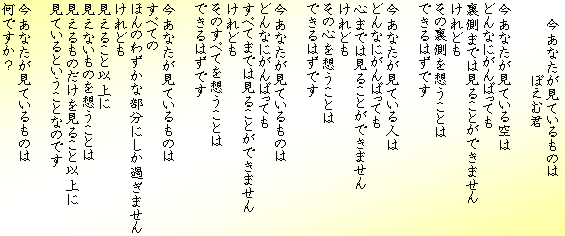 今あなたが見ているものは
ぽえむ君
今あなたが見ている空は
どんなにがんばっても
裏側までは見ることができません
けれども
その裏側を想うことは
できるはずです
今あなたが見ている人は
どんなにがんばっても
心までは見ることができません
けれども
その心を想うことは
できるはずです
今あなたが見ているものは
どんなにがんばっても
すべてまでは見ることができません
けれども
そのすべてを想うことは
できるはずです
今あなたが見ているものは
すべての
ほんのわずかな部分にしか過ぎません
けれども
見えること以上に
見えないものを想うことは
見えるものだけを見ること以上に
見ているということなのです
今あなたが見ているものは
何ですか？